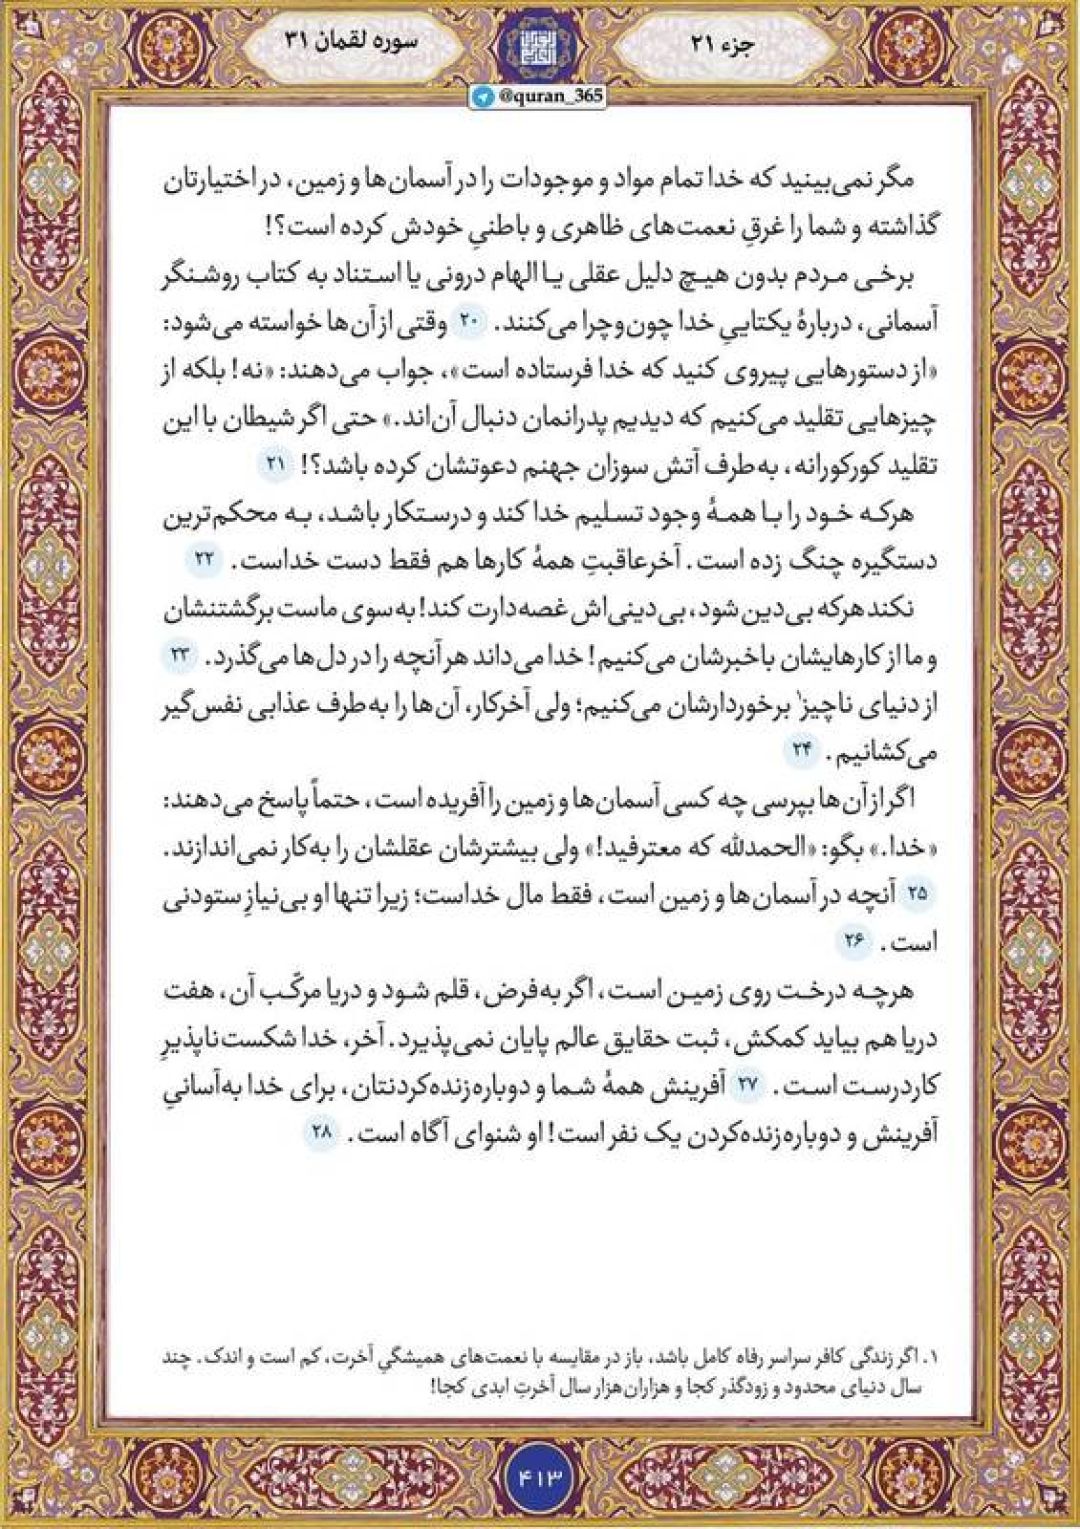 جزء ۲۱
سوره لقمان ۳۱
@quran_365
مگر نمی‌بینید که خدا تمام مواد و موجودات را در آسمان‌ها و زمین، در اختیارتان
گذاشته و شما را غرقِ نعمت‌های ظاهری و باطنیِ خودش کرده است؟!
برخی مردم بدون هیچ دلیل عقلی یا الهام درونی یا استناد به کتاب روشنگر
آسمانی، دربارهٔ یکتاییِ خدا چون‌وچرا می‌کنند. ۲۰ وقتی از آن‌ها خواسته می‌شود:
«از دستورهایی پیروی کنید که خدا فرستاده است»، جواب می‌دهند: «نه! بلکه از
چیزهایی تقلید می‌کنیم که دیدیم پدرانمان دنبال آن‌اند.» حتی اگر شیطان با این
تقلید کورکورانه، به‌طرف آتش سوزان جهنم دعوتشان کرده باشد؟! ۲۱
هرکه خود را با همهٔ وجود تسلیم خدا کند و درستکار باشد، به محکم‌ترین
دستگیره چنگ زده است. آخرعاقبتِ همهٔ کارها هم فقط دست خداست. ۲۲
نکند هرکه بی‌دین شود، بی‌دینی‌اش غصه‌دارت کند! به‌سوی ماست برگشتنشان
و ما از کارهایشان باخبرشان می‌کنیم! خدا می‌داند هر آنچه را در دل‌ها می‌گذرد. ۲۳
از دنیای ناچیز۱ برخوردارشان می‌کنیم؛ ولی آخرکار، آن‌ها را به‌طرف عذابی نفس‌گیر
می‌کشانیم. ۲۴
اگر از آن‌ها بپرسی چه کسی آسمان‌ها و زمین را آفریده است، حتماً پاسخ می‌دهند:
«خدا.» بگو: «الحمدلله که معترفید!» ولی بیشترشان عقلشان را به‌کار نمی‌اندازند.
۲۵ آنچه در آسمان‌ها و زمین است، فقط مال خداست؛ زیرا تنها او بی‌نیازِ ستودنی
است. ۲۶
هرچه درخت روی زمین است، اگر به‌فرض، قلم شود و دریا مرکّب آن، هفت
دریا هم بیاید کمکش، ثبت حقایق عالم پایان نمی‌پذیرد. آخر، خدا شکست‌ناپذیرِ
کاردرست است. ۲۷ آفرینش همهٔ شما و دوباره‌زنده‌کردنتان، برای خدا به‌آسانیِ
آفرینش و دوباره‌زنده‌کردن یک نفر است! او شنوای آگاه است. ۲۸
۱. اگر زندگی کافر سراسر رفاه کامل باشد، باز در مقایسه با نعمت‌های همیشگیِ آخرت، کم است و اندک. چند
سال دنیای محدود و زودگذر کجا و هزاران‌هزار سال آخرتِ ابدی کجا!
۴۱۳